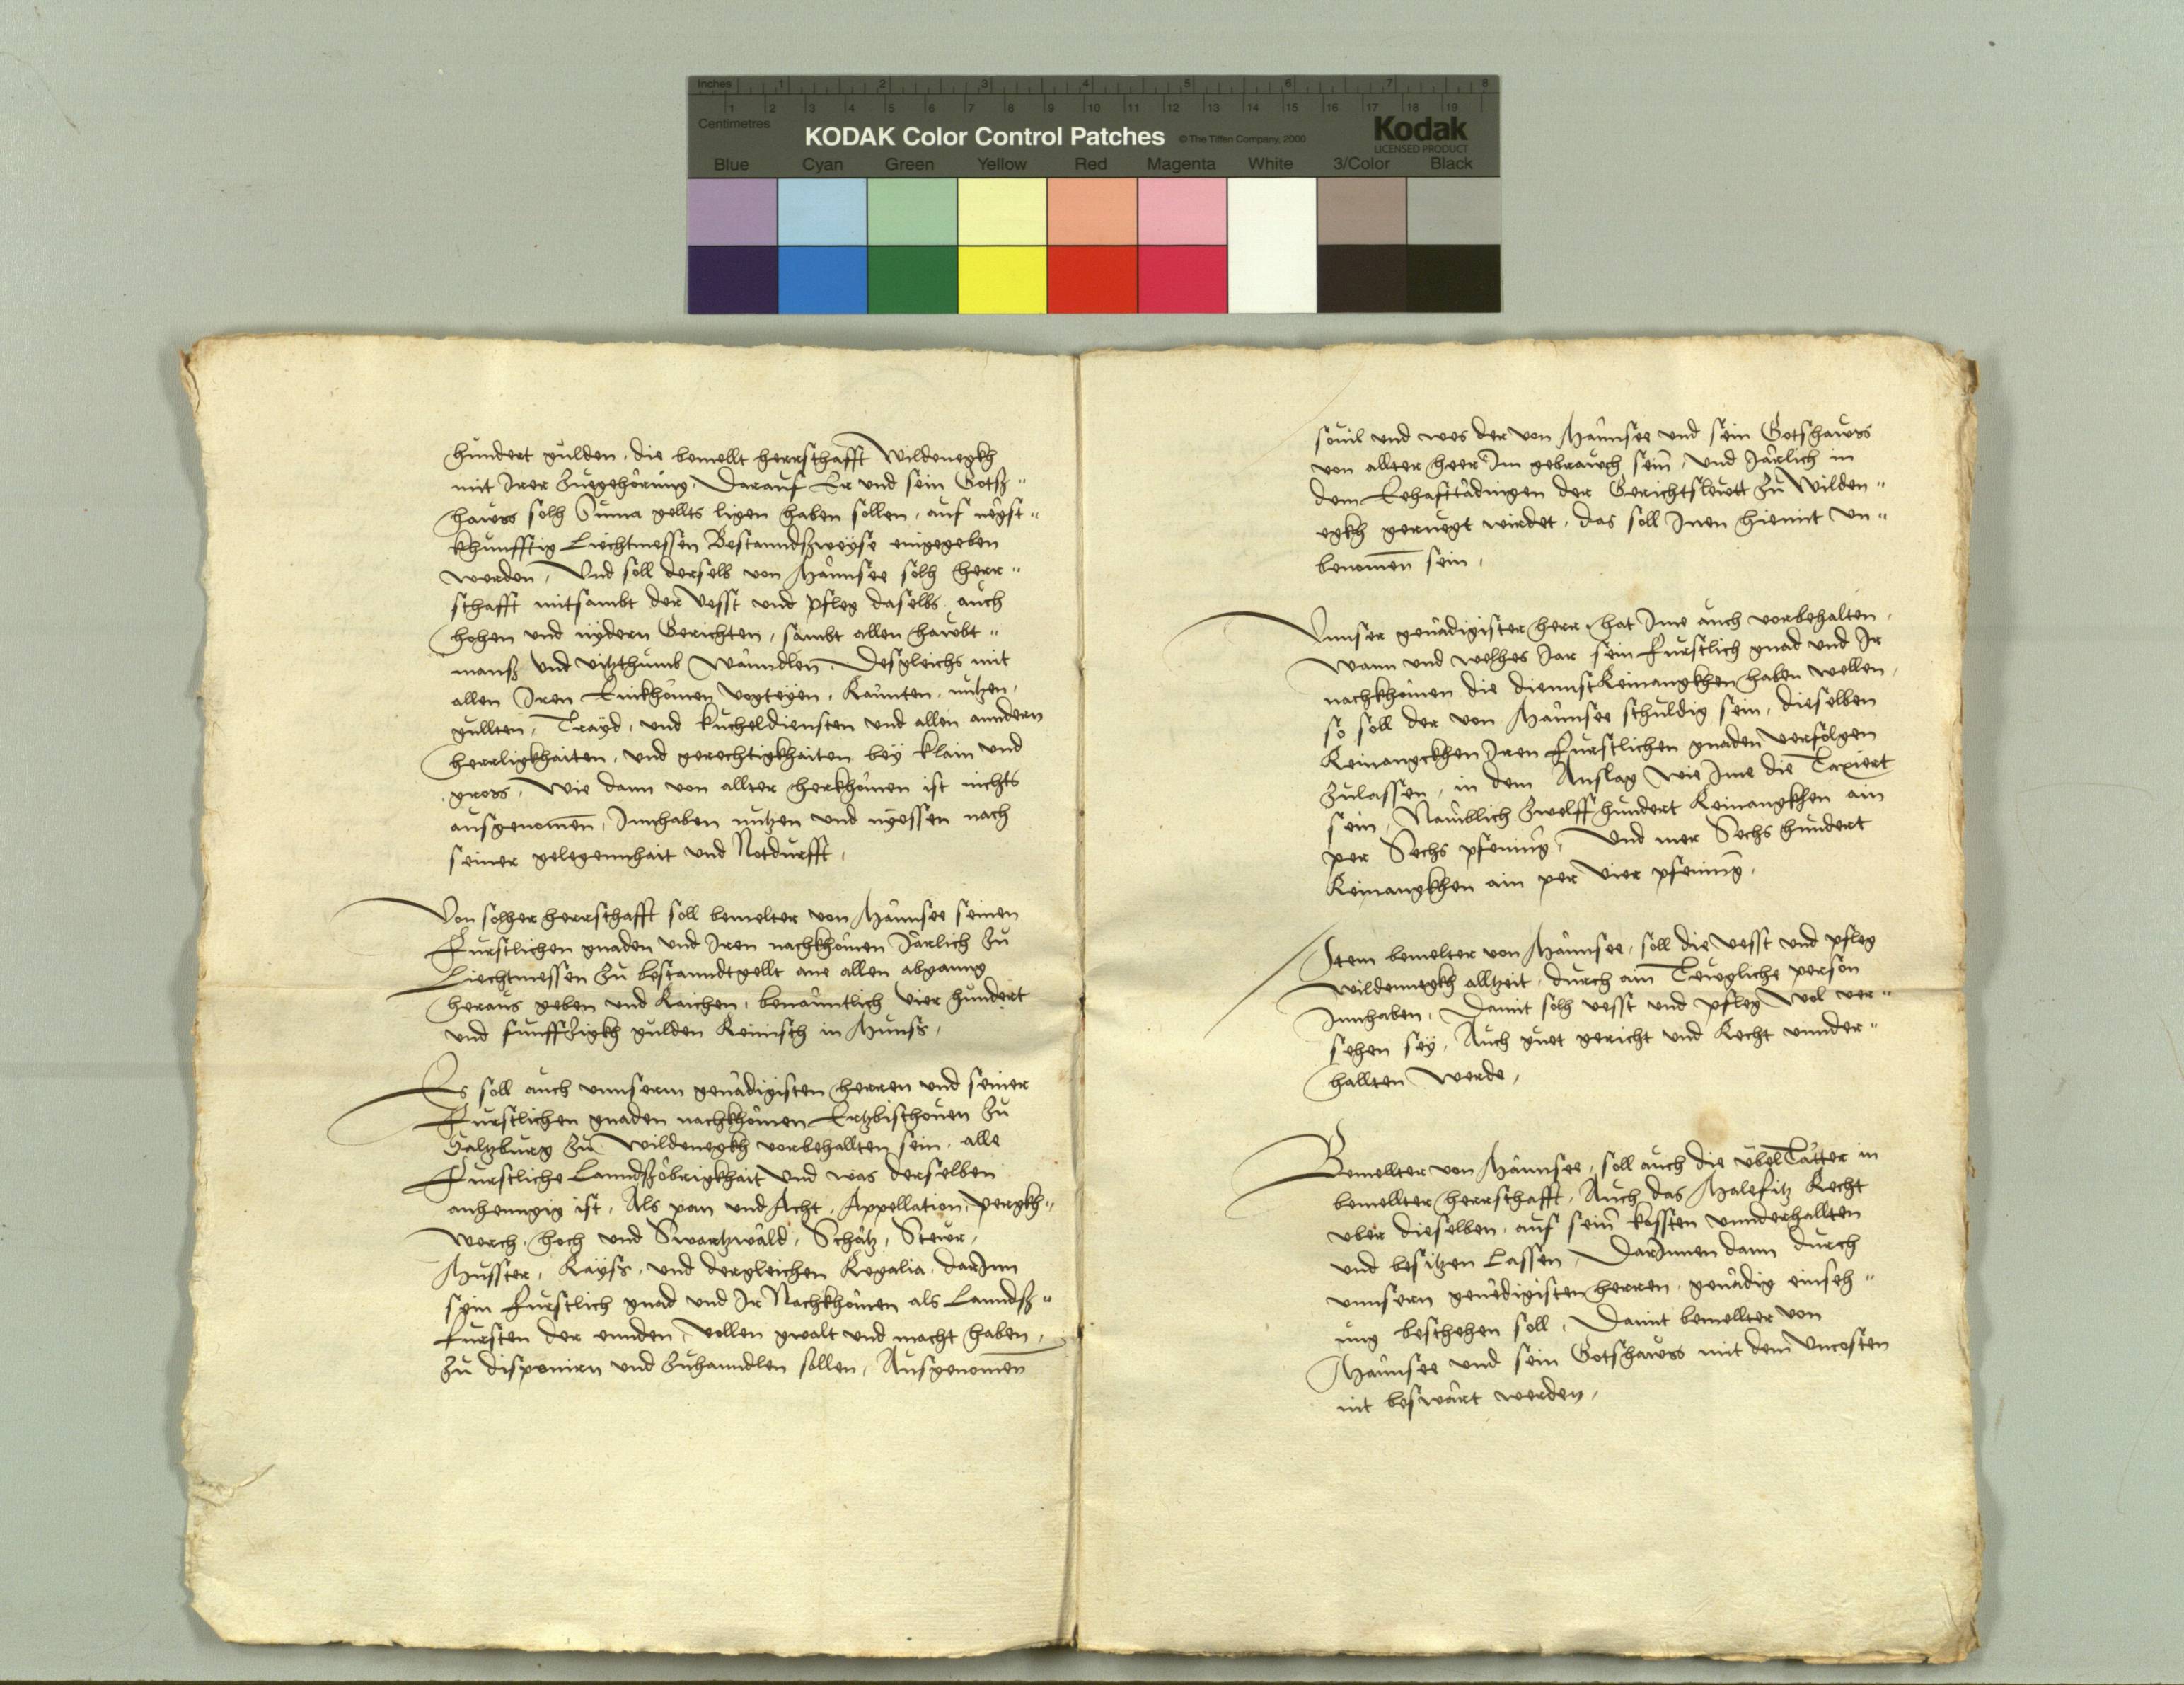 Inches 1 2 3 4 5 6 7 8
1 2 3 4 5 6 7 8 9 10 11 12 13 14 15 16 17 18 19
Centimetres
KODAK Color Control Patches © The Tiffen Company, 2000 Kodak
LICENSED PRODUCT
Blue Cyan Green Yellow Red Magenta White 3/Color Black
hundert gulden, die bemellt herrschafft Wildenegkh
mit Irer Zuegehörung, Darauf Er und sein Gotß"
hawss solh Suma gellts ligen haben sollen, auf negst"
khunfftig Liechtmessen Bestanndßweyse eingegeben
werden, Und soll derselb von Männsee solh herr"
schafft mitsambt der Vesst und Pfleg daselbs, auch
hohen und nydern Gerichten, sambt allen hawbt"
manß und vitzthumb Wänndlen, Desgleichs mit
allen Iren Einkhomen vogteyen, Rännten, nutzen,
gullten, Trayd, und kucheldiensten und allen anndern
herrligkhaiten, und gerechtigkhaiten bey klain und
gross, Wie dann von allter herkhomen ist nichts
ausgenomen, Innhaben nutzen und nyessen nach
seiner gelegennhait und Notdurfft,
Von solher herrschafft soll bemelter von Männsee seinen
Furstlichen gnaden und Iren nachkhomen Järlich zu
Liechtmessen zu bestanndtgellt ane allen abganng
heraus geben und Raichen, benänntlich vier hundert
und funffzigkh gulden Reinisch in Munss,
Es soll auch unnserm genädigisten herren und seiner
Furstlichen gnaden nachkhomen Ertzbischouen zu
Saltzburg zu Wildenegkh vorbehallten sein, alle
Furstliche Lanndßöbrigkhait und was derselben
anhenngig ist, Als pan und Acht, Appellation, pergkh"
werch, hoch und Swartzwäld, Schätz, Stewr,
Musster, Rayss, und dergleichen Regalia, darInn
sein furstlich gnad und Ir Nachkhomen als Lanndß"
fursten der ennden, vollen gwalt und macht haben,
zu disponirn und zuhanndlen sollen, Ausgenomen
souil und wes der von Männsee und sein Gotshawss
von allter heer Im gebrauch sein, und Järlich in
dem Eehafttädingen der Gerichtslewtt zu Wilden"
egkh geruegt wirdet, das soll Inen hiemit un"
benomen sein,
Unnser genädigister herr, hat Ime auch vorbehalten,
Wann und welhes Jar sein furstlich gnad und Ir
nachkhomen die diennst Reinangkhen haben wellen,
so soll der von Männsee schuldig sein, dieselben
Reinangckhen Iren furstlichen gnaden verfolgen
zulassen, in dem Anslag wie Ime die Taxiert
sein, Nämblich zwelffhundert Reinangkhen ain
per Sechs pfening, Und mer Sechs hundert
Reinangkhen ain per vier pfening,
Item bemelter von Männsee, soll die vesst und pfleg
wildennegkh alltzeit, durch ain Teugliche person
Innhaben, Damit solh vesst und pfleg wol ver"
sehen sey, Auch guet gericht und Recht unnder"
hallten werde,
Bemellter von Männsee, soll auch die übelTätter in
bemellter herrschafft, Auch das Malefitz Recht
uber dieselben, auf sein kossten unnderhallten
und besitzen Lassen, DarInnen dann durch
unnsern genedigisten herren, genädig einseh"
ung beschehen soll, Damit bemellter von
Männsee und sein Gotshawss mit dem Uncosten
nit beswärt werden,